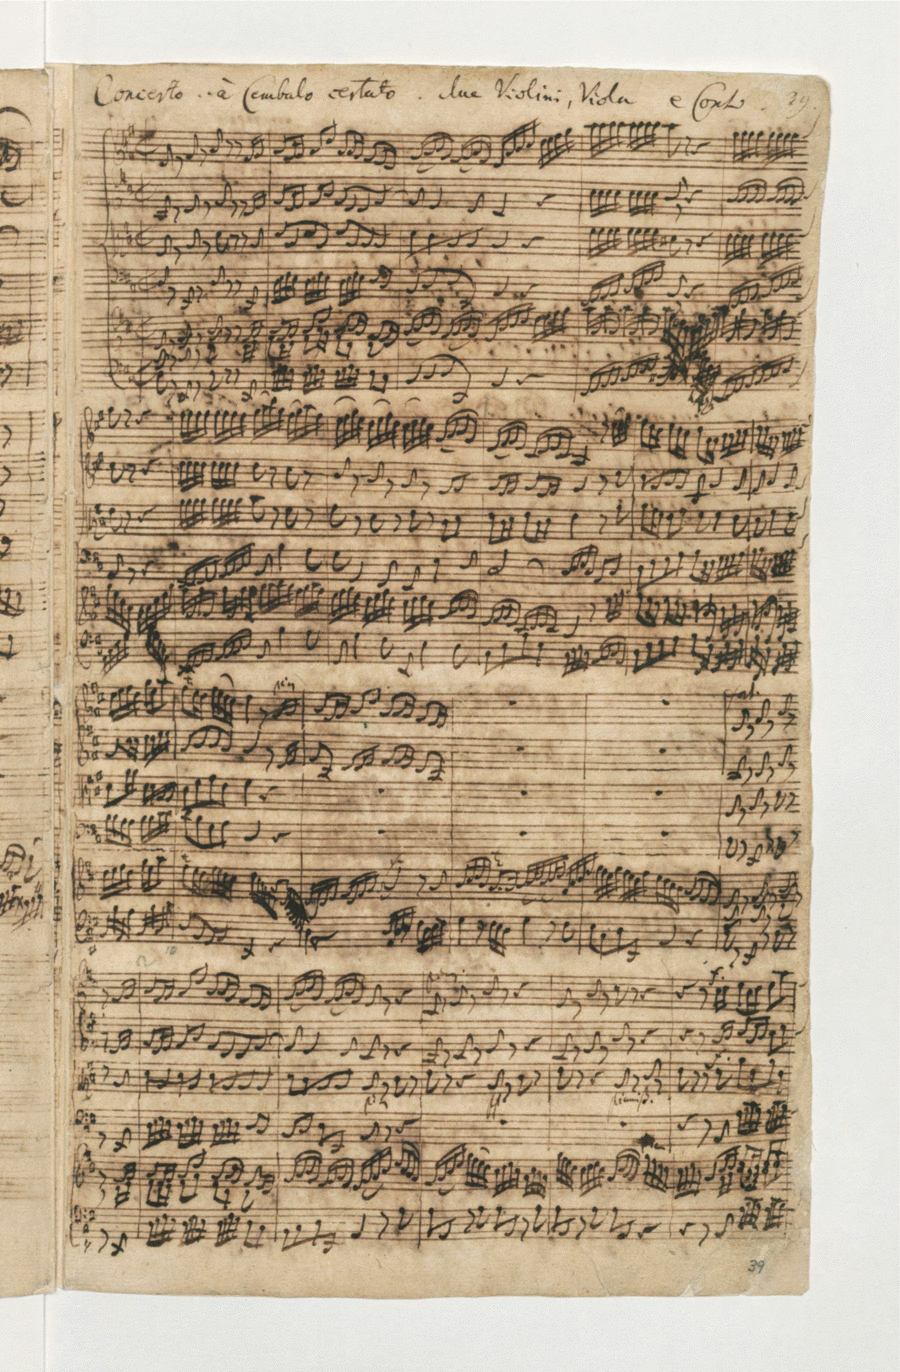 Concerto . à Cembalo certato . due Violini, Viola e Cont. 39.
39